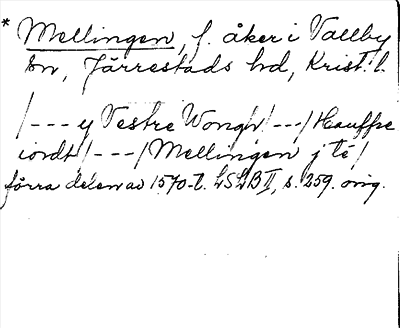 * Mellingen, f. åker i Vallby
sn, Järrestads hd, Krist. l.
/---y Vestre Wongh/---/Hauffre
iordt/---/Mellingen j té/
förra delen av 1570-t. LSLB II, s. 259. orig.